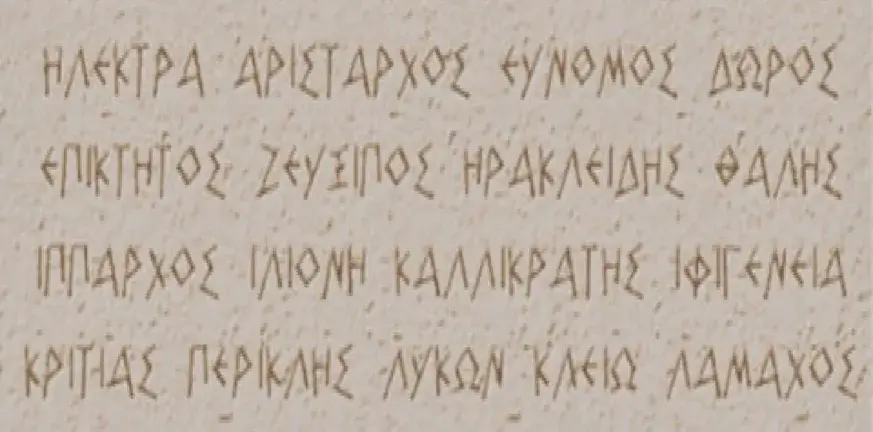 ΗΛΕΚΤΡΑ ΑΡΙΣΤΑΡΧΟΣ ΕΥΝΟΜΟΣ ΔΩΡΟΣ
ΕΠΙΚΤΗΤΟΣ ΖΕΥΞΙΠΟΣ ΗΡΑΚΛΕΙΔΗΣ ΘΑΛΗΣ
ΙΠΠΑΡΧΟΣ ΙΛΙΟΝΗ ΚΑΛΛΙΚΡΑΤΗΣ ΙΦΙΓΕΝΕΙΑ
ΚΡΙΤΙΑΣ ΠΕΡΙΚΛΗΣ ΛΥΚΩΝ ΚΛΕΙΩ ΛΑΜΑΧΟΣ